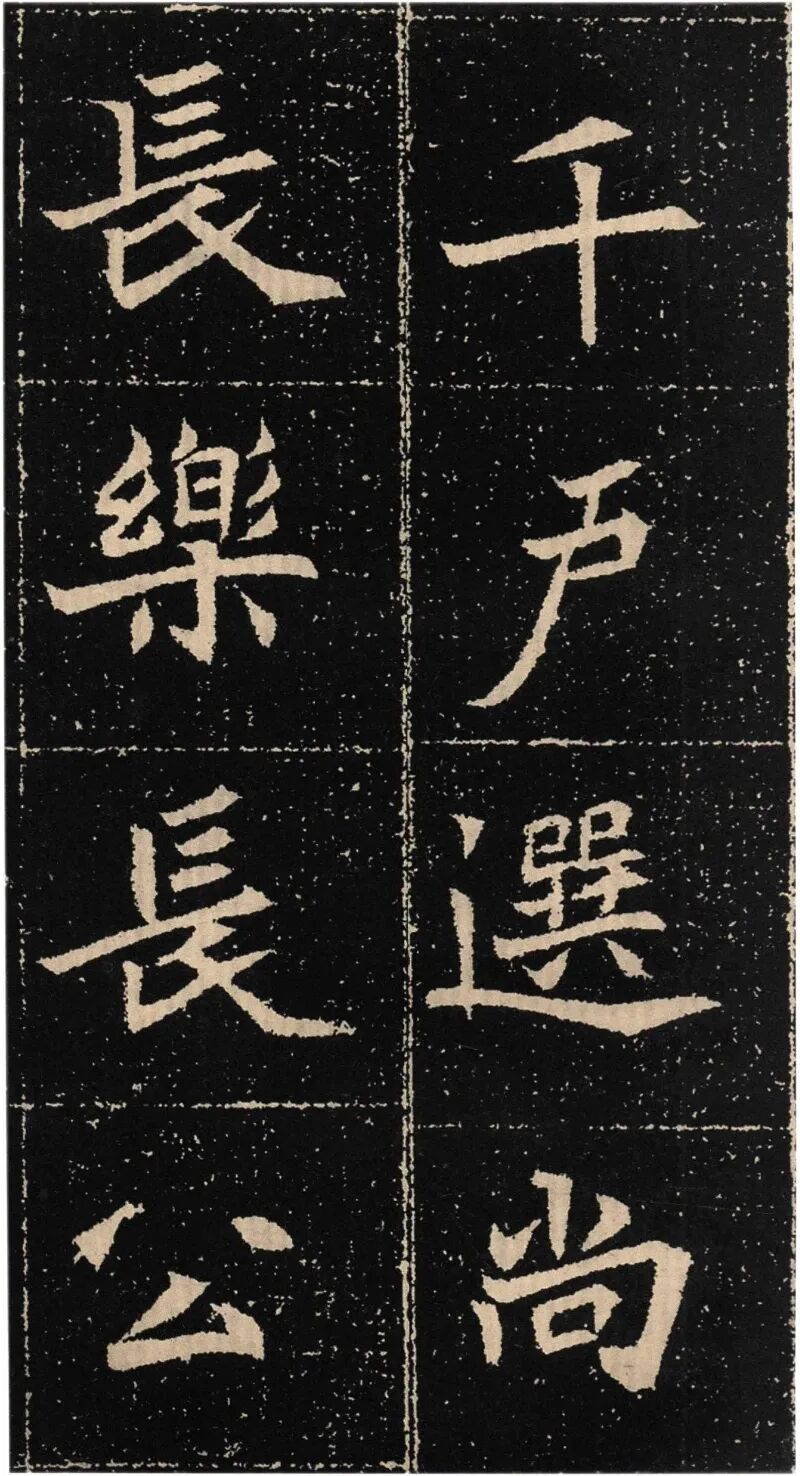 千户選尚
長樂長公